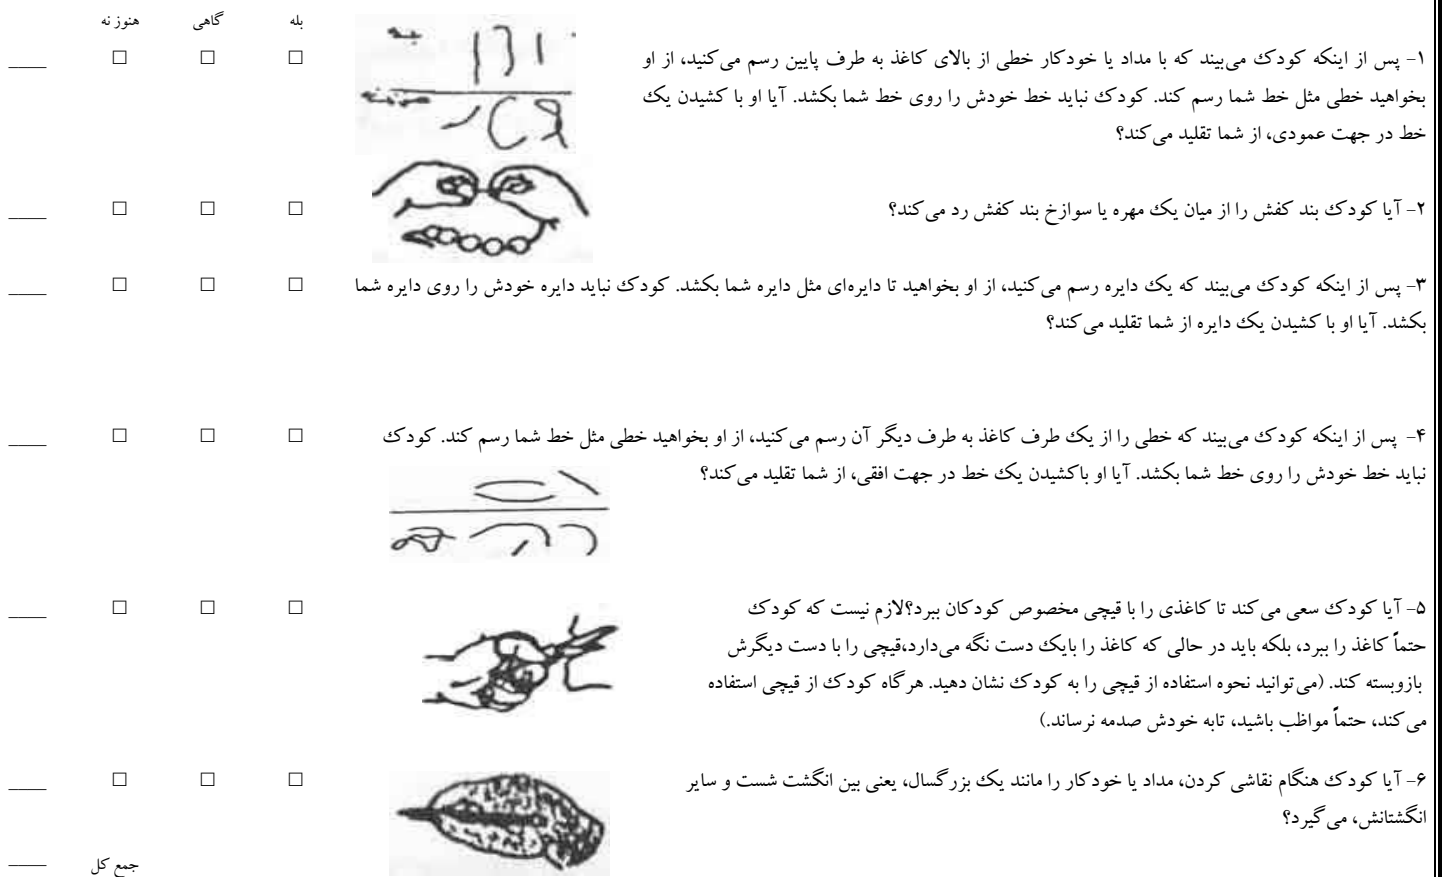 بله گاهی هنوز نه
۱- پس از اینکه کودک می‌بیند که با مداد یا خودکار خطی از بالای کاغذ به طرف پایین رسم می‌کنید، از او
بخواهید خطی مثل خط شما رسم کند. کودک نباید خط خودش را روی خط شما بکشد. آیا او با کشیدن یک
خط در جهت عمودی، از شما تقلید می‌کند؟
۲- آیا کودک بند کفش را از میان یک مهره یا سوازخ بند کفش رد می‌کند؟
۳- پس از اینکه کودک می‌بیند که یک دایره رسم می‌کنید، از او بخواهید تا دایره‌ای مثل دایره شما بکشد. کودک نباید دایره خودش را روی دایره شما
بکشد. آیا او با کشیدن یک دایره از شما تقلید می‌کند؟
۴- پس از اینکه کودک می‌بیند که خطی را از یک طرف کاغذ به طرف دیگر آن رسم می‌کنید، از او بخواهید خطی مثل خط شما رسم کند. کودک
نباید خط خودش را روی خط شما بکشد. آیا او باکشیدن یک خط در جهت افقی، از شما تقلید می‌کند؟
۵- آیا کودک سعی می‌کند تا کاغذی را با قیچی مخصوص کودکان ببرد؟لازم نیست که کودک
حتماً کاغذ را ببرد، بلکه باید در حالی که کاغذ را بایک دست نگه می‌دارد،قیچی را با دست دیگرش
بازوبسته کند. (می‌توانید نحوه استفاده از قیچی را به کودک نشان دهید. هرگاه کودک از قیچی استفاده
می‌کند، حتماً مواظب باشید، تابه خودش صدمه نرساند.)
۶- آیا کودک هنگام نقاشی کردن، مداد یا خودکار را مانند یک بزرگسال، یعنی بین انگشت شست و سایر
انگشتانش، می‌گیرد؟
جمع کل